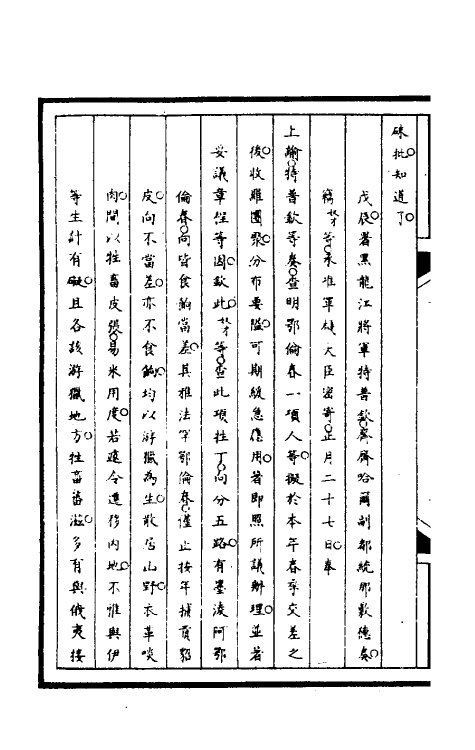 硃批知道了
戊辰署黑龍江將軍特普欽齊齊哈爾副都統那敷德奏
竊奴才等承准軍機大臣密寄正月二十七日奉
上諭特普欽等奏查明鄂倫春一項人等擬於本年春季交差之
後收雅團聚分布要隘可期緩急應用著即照所議辦理並著
妥議章程等因欽此奴才等查此項牲丁向分五路有墨淩阿鄂
倫春向皆食餉當差其雅法罕鄂倫春僅止按年捕貢貂
皮向不當差亦不食餉均以游獵為生散居山野衣革啖
肉間以牲畜皮張易米用度若遽令遷移內地不惟與伊
等生計有礙且各該游獵地方牲畜蕃滋多有與俄夷接